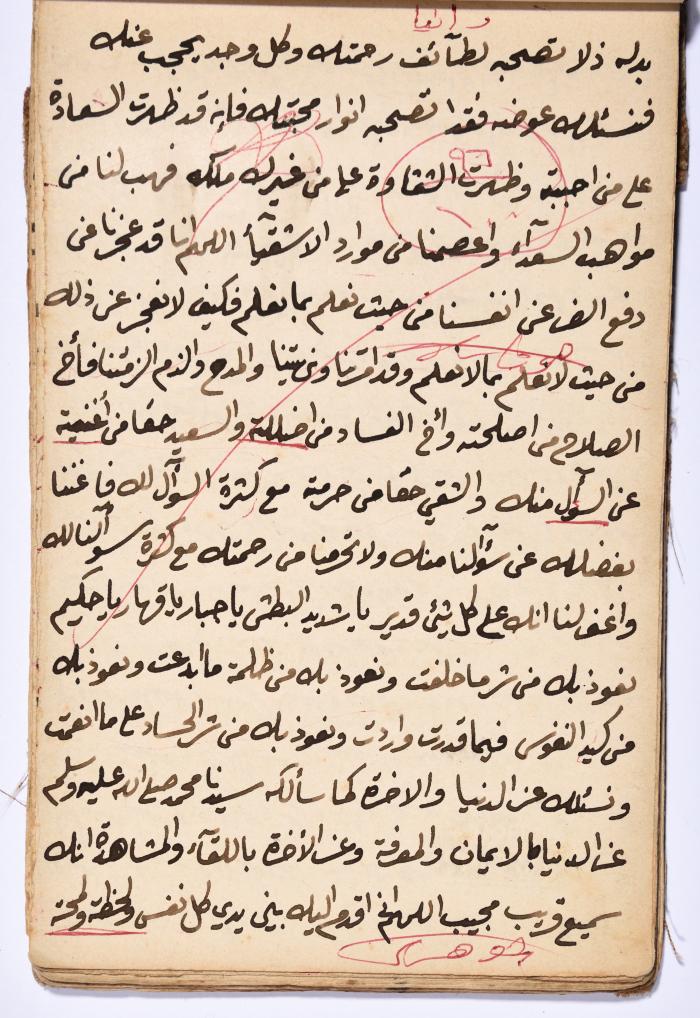 بدله ذلا تصحبه لطآئف رحمتك وكل وجد يحجب عنك
فنسئلك عوضه فقدا تصحبه انوار محبتك فإنه قد ظهرت السعادة
على من احببته وظهرت الشقاوة على من غيرك ملكه فهب لنا من
مواهب السعدآء واعصمنا من موارد الاشقيآء اللهم انا قد عجزنا عن
دفع الضر عن انفسنا من حيث نعلم بما نعلم فكيف لا نعجز عن ذلك
من حيث لا نعلم بما لا نعلم وقد امرتنا ونهيتنا والمدح والذم الزمتنا فأخ
الصلاح من اصلحته وأخ الفساد من اضللته والسعيد حقا من أغنيته
عن السؤآل منك والشقي حقا من حرمته مع كثرة السؤآل لك فاغننا
بفضلك عن سؤآلنا منك ولا تحرمنا من رحمتك مع كثرة سوآلنا لك
واغفر لنا انك على كل شئ قدير يا شديد البطش يا جبار يا قهار يا حكيم
نعوذ بك من شر ما خلقت ونعوذ بك من ظلمة ما ابدعت ونعوذ بك
من كيد النفوس فيما قدرت واردت ونعوذ بك من شر الحساد على ما انعمت
ونسئلك عز الدنيا والاخرة كما سألكه سيدنا محمد صلى الله عليه وسلم
عز الدنيا بالايمان والمعرفة وعز الأخرة باللقآء والمشاهدة انك
سميع قريب مجيب اللهم اني اقدم اليك بين يدي كل نفس ولحظة ولمحة